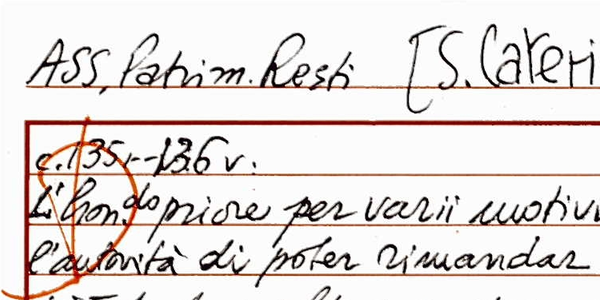 ASS, Patrim. Resti [S. Cateri
c. 135r-136v.
Li hon.do priore per varii motivi
l'autorità di poter rimandar